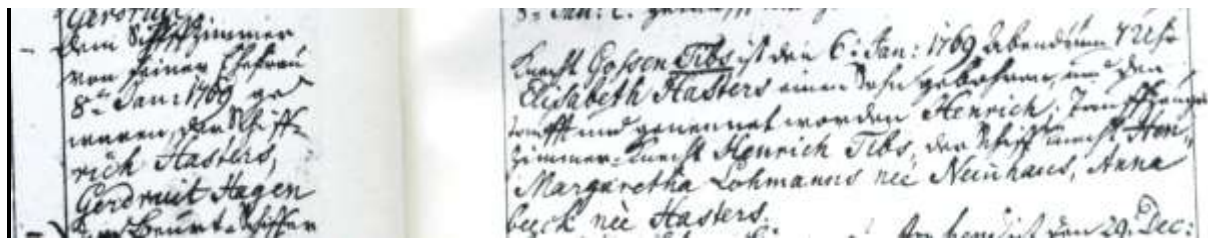 Gerdruit
Dem Schiffzimmer
von seiner Ehefrau
8ten Jan: 1769 ge
waren, der Schiff-
rich Hasters,
Gerdruit Hagen
Dem Beurt-Schiffer
8ten Jan: c.
Knecht Gossen Tibs ist den 6: Jan: 1769 Abends um 7 Uhr
Elisabeth Hasters einen Sohn gebohren, und den
taufft und genennet worden Henrich; Tauffzeugen
zimmer-Knecht Henrich Tibs, der Schiff knecht Hen-
Margaretha Lohmanns neé Neuhaus, Anna
beeck neé Hasters.
den 29. Dec: